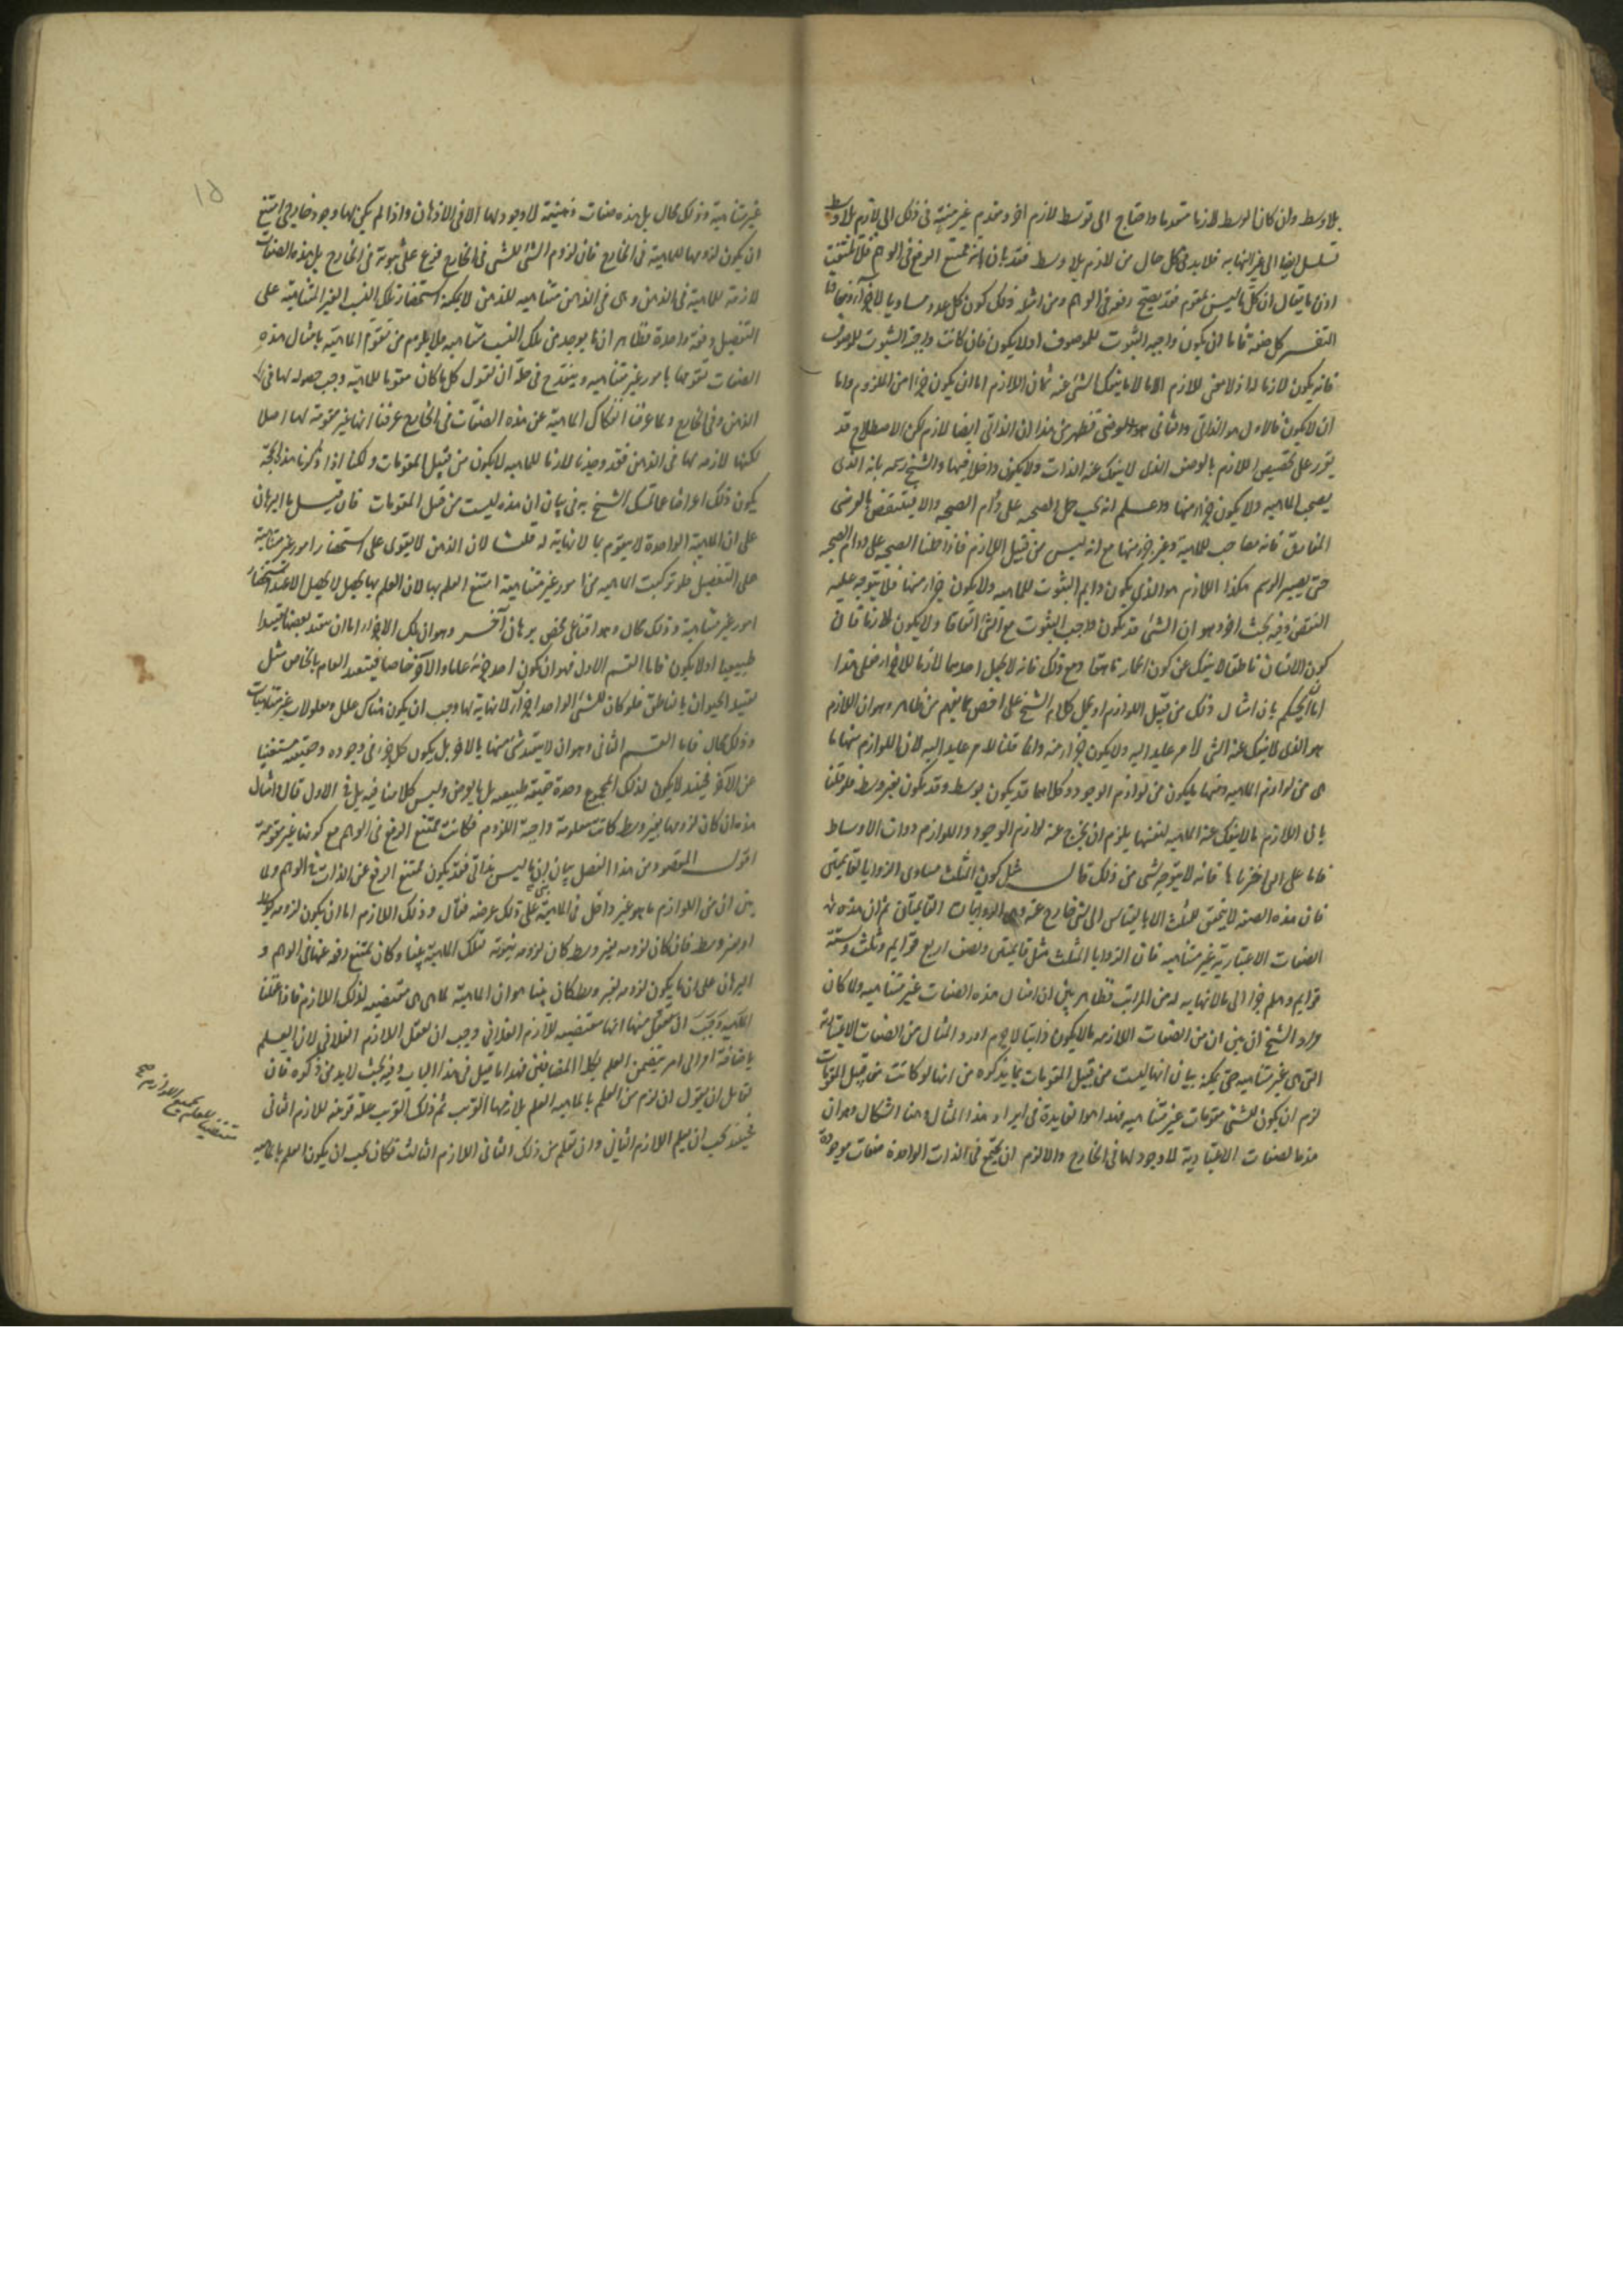 بلا وسط وان كان الوسط لازما متقدما واحتاج الى توسط لازم اخر او مقدم غير منته فى ذلك الى لازم بلا وسط
تسلسل ايضا الى غير النهاية فلا بد فى كل حال من لازم بلا وسط فقد بان انه ممتنع الرفع فى الوهم فلا تلتفت
اذن ما يقال ان كل ما ليس بمقوم فقد يصح رفعه فى الوهم ومن امثلة ذلك كون كل عدد مساويا للاخر او مفاوتا
التفسير كل صفة فاما ان يكون واجبة الثبوت للموصوف او لا يكون فان كانت واجبة الثبوت للموصوف
فانه يكون لازما له اذ لا معنى للازم الا ما لا ينفك الشئ عنه ثم ان اللازم اما ان يكون جزءا من الملزوم واما
ان لا يكون فالاول هو الذاتى والثانى هو العرضى فظهر من هذا ان الذاتى ايضا لازم لكن الاصطلاح قد
تقرر على تخصيص اللازم بالوصف الذى لا ينفك عنه الذات ولا يكون داخلا فيها والشيخ رسمه بانه الذى
يصحب الماهيه ولا يكون جزءا منها واعلم انه يجب حمل الصحبه على دوام الصحبه والا فينتقض بالعرضى
المفارق فانه مصاحب للماهية وغير جزء منها مع انه ليس من قبيل اللازم فاذا حملنا الصحبه على دوام الصحبه
حتى يصير الرسم هكذا اللازم هو الذى يكون دايم الثبوت للماهيه ولا يكون جزءا منها فلا يتوجه عليه
النقض وفيه بحث اخر وهو ان الشئ قد يكون واجب الثبوت مع الشئ اتفاقا ولا يكون لازما فان
كون الانسان ناطقا لا ينفك عن كون الحمار ناهقا ومع ذلك فانه لا يجعل احدهما لازما للاخر فعلى هذا
اما ان يحكم بان امثال ذلك من قبيل اللوازم او يحمل كلام الشيخ على اخص مما يفهم من ظاهره وهو ان اللازم
هو الذى لا ينفك عنه الشئ لامر عايد اليه ولا يكون جزءا منه وانما قلنا لامر عايد اليه لان اللوازم منها ما
هى من لوازم الماهيه ومنها ما يكون من لوازم الوجود وكلاهما قد يكون بوسط وقد يكون بغير وسط فلو قلنا
بان اللازم ما لا ينفك عنه الماهيه لنفسها يلزم ان يخرج عنه لوازم الوجود واللوازم ذوات الاوساط
فاما على ما اخترناه فانه لا يتوجه شئ من ذلك قال مثل كون المثلث مساوى الزوايا لقايمتين
فان هذه الصفة لا يتحقق للمثلث الا بالقياس الى شئ خارج عنه وهى الزاويتان القايمتان ثم ان هذه من
الصفات الاعتبارية غير متناهيه فان الزوايا المثلث مثل قايمتين ونصف اربع قوايم وثلث ستة
قوايم وهلم جرا الى ما لا نهايه له من المراتب فظاهر بين ان امثال هذه الصفات غير متناهيه ولما كان
مراد الشيخ ان يبين ان من الصفات اللازمه ما لا يكون ذاتيا لا جرم اورد المثال من الصفات الاعتبارية
التى هى غير متناهيه حتى يمكنه بيان انها ليست من قبيل المقومات بما يذكره من انها لو كانت من قبيل المقومات
لزم ان يكون للشئ مقومات غير متناهيه فهذا هو الفايدة فى ايراد هذا المثال وههنا اشكال وهو ان
هذه الصفات الاعتبارية لا وجود لها فى الخارج والا لزم ان يجتمع فى الذات الواحدة صفات موجودة
١٥
غير متناهية وذلك محال بل هذه صفات ذهنية لا وجود لها الا فى الاذهان واذا لم يكن لها وجود خارجى امتنع
ان يكون لزومها للماهية فى الخارج فان لزوم الشئ للشئ فى الخارج فرع على ثبوته فى الخارج بل هذه الصفات
لازمة للماهية فى الذهن وهى فى الذهن متناهيه للذهن لا يمكنه استحضار تلك النسب الغير المتناهية على
التفصيل دفعة واحدة فظاهر ان ما يوجد من تلك النسب متناهيه فلا يلزم من تقوم الماهية بامثال هذه
الصفات تقومها بامور غير متناهيه وينقدح فى حله ان نقول كل ما كان مقوما للماهية وجب حصوله لها فى
الذهن وفى الخارج ولما عرفنا انفكاك الماهية عن هذه الصفات فى الخارج عرفنا انها غير مقومة لها اصلا
لكنها لازمه لها فى الذهن فقد وجدنا لازما للماهيه لا يكون من قبيل المقومات ولكنا اذا ذكرنا هذه الحجة
يكون ذلك اعراضا عما تمسك الشيخ به فى بيان ان هذه ليست من قبل المقومات فان قيل ما البرهان
على ان الماهية الواحدة لا يتقوم بما لا نهاية له قلنا لان الذهن لا يقوى على استحضار امور غير متناهية
على التفصيل فلو تركبت الماهيه من امور غير متناهية امتنع العلم بها لان العلم بها لا يحصل الا عند استحضار
امور غير متناهية وذلك محال وهو اقناعى محض برهان آخر وهو ان تلك الاجزاء اما ان يتقيد بعضها تقيدا
طبيعيا او لا يكون فاما القسم الاول فهو ان يكون احد جزئيه عاما والآخر خاصا فيتقيد العام بالخاص مثل
تقييد الحيوان بالناطق فلو كان للشئ الواحد اجزاء لا نهاية لها وجب ان يكون هناك علل ومعلولات غير متناهيات
وذلك محال فاما القسم الثانى وهو ان لا يتقيد شئ منها بالاخر بل يكون كل جزء فى وجوده وحقيقته مستغنيا
عن الآخر فحينئذ لا يكون لذلك المجموع وحدة حقيقة طبيعيه بل بالعرض وليس كلامنا فيه بل فى الاول قال وامثال
هذه ان كان لزومها بغير وسط كانت معلومة واجبة اللزوم فكانت ممتنع الرفع فى الوهم مع كونها غير مقومة
اقول المقصود من هذا الفصل بيان ان ما ليس بذاتى فقد يكون ممتنع الرفع عن الذات فى الوهم ولما
بين ان من اللوازم ما هو غير داخل فى الماهية بنى على ذلك غرضه فقال وذلك اللازم اما ان يكون لزومه بوسط
او بغير وسط فان كان لزومه بغير وسط كان لزومه بينونة لتلك الماهية بينا وكان يمتنع رفعه عنها فى الوهم و
البرهان على ان ما يكون لزومه بغير وسط كان بينا هو ان الماهية لما هى هى مقتضيه لذلك اللازم فاذا عقلنا
الماهية وجب ان نعقل منها انها مقتضيه للازم الفلانى وجب ان نعقل اللازم الفلانى لان العلم
باضافة امر الى امر يتضمن العلم بكلا المضافين فهذا ما قيل فى هذا الباب وفيه بحث لا بد من ذكره فان
لقايل ان يقول ان لزم من العلم بالماهيه العلم بلازمها القريب ثم ذلك القريب علة قريبة للازم الثانى
فحينئذ يجب ان يعلم اللازم الثانى وان نعلم من ذلك الثانى اللازم الثالث فكان يجب ان يكون العلم بالماهيه
مقتضيا للعلم بجميع اللوازم صح